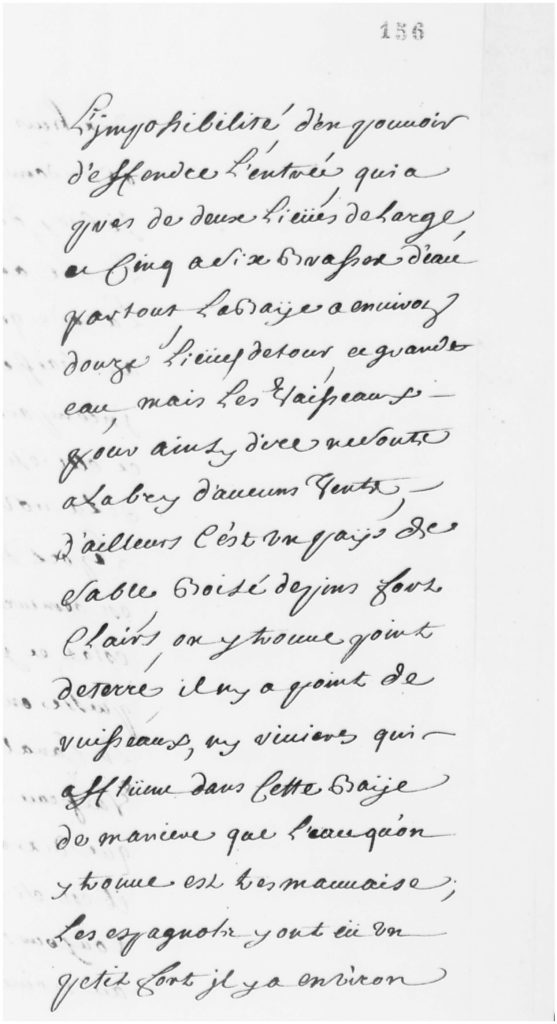 156
L'jmpossibilité d'en pouuoir
d'effendre L'entrée qui a
pres de deux Lieües de Large,
et Cinq a Six Brasses d'eau
partout, La Baÿe a enuiron
douze Lieües de tour et grande
eau, mais Les Vaisseaux —
pour ainsy dire ne sont
a Labry d'aucuns Vents, —
d'ailleurs C'est un païs de
Sable Boisé de pins fort
Clairs, on y trouue point
de terre, il ny a point de
ruisseaux, ny riuieres qui —
afflüent dans Cette Baÿe
de maniere que L'eau qu'on
y trouue est tres mauuaise;
Les espagnols y ont eü un
petit fort jl y a enuiron